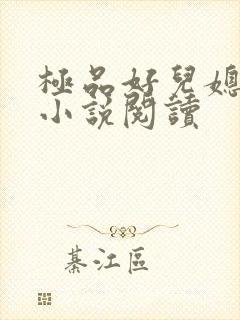 極品好兒媳
小說閱讀
綦江區